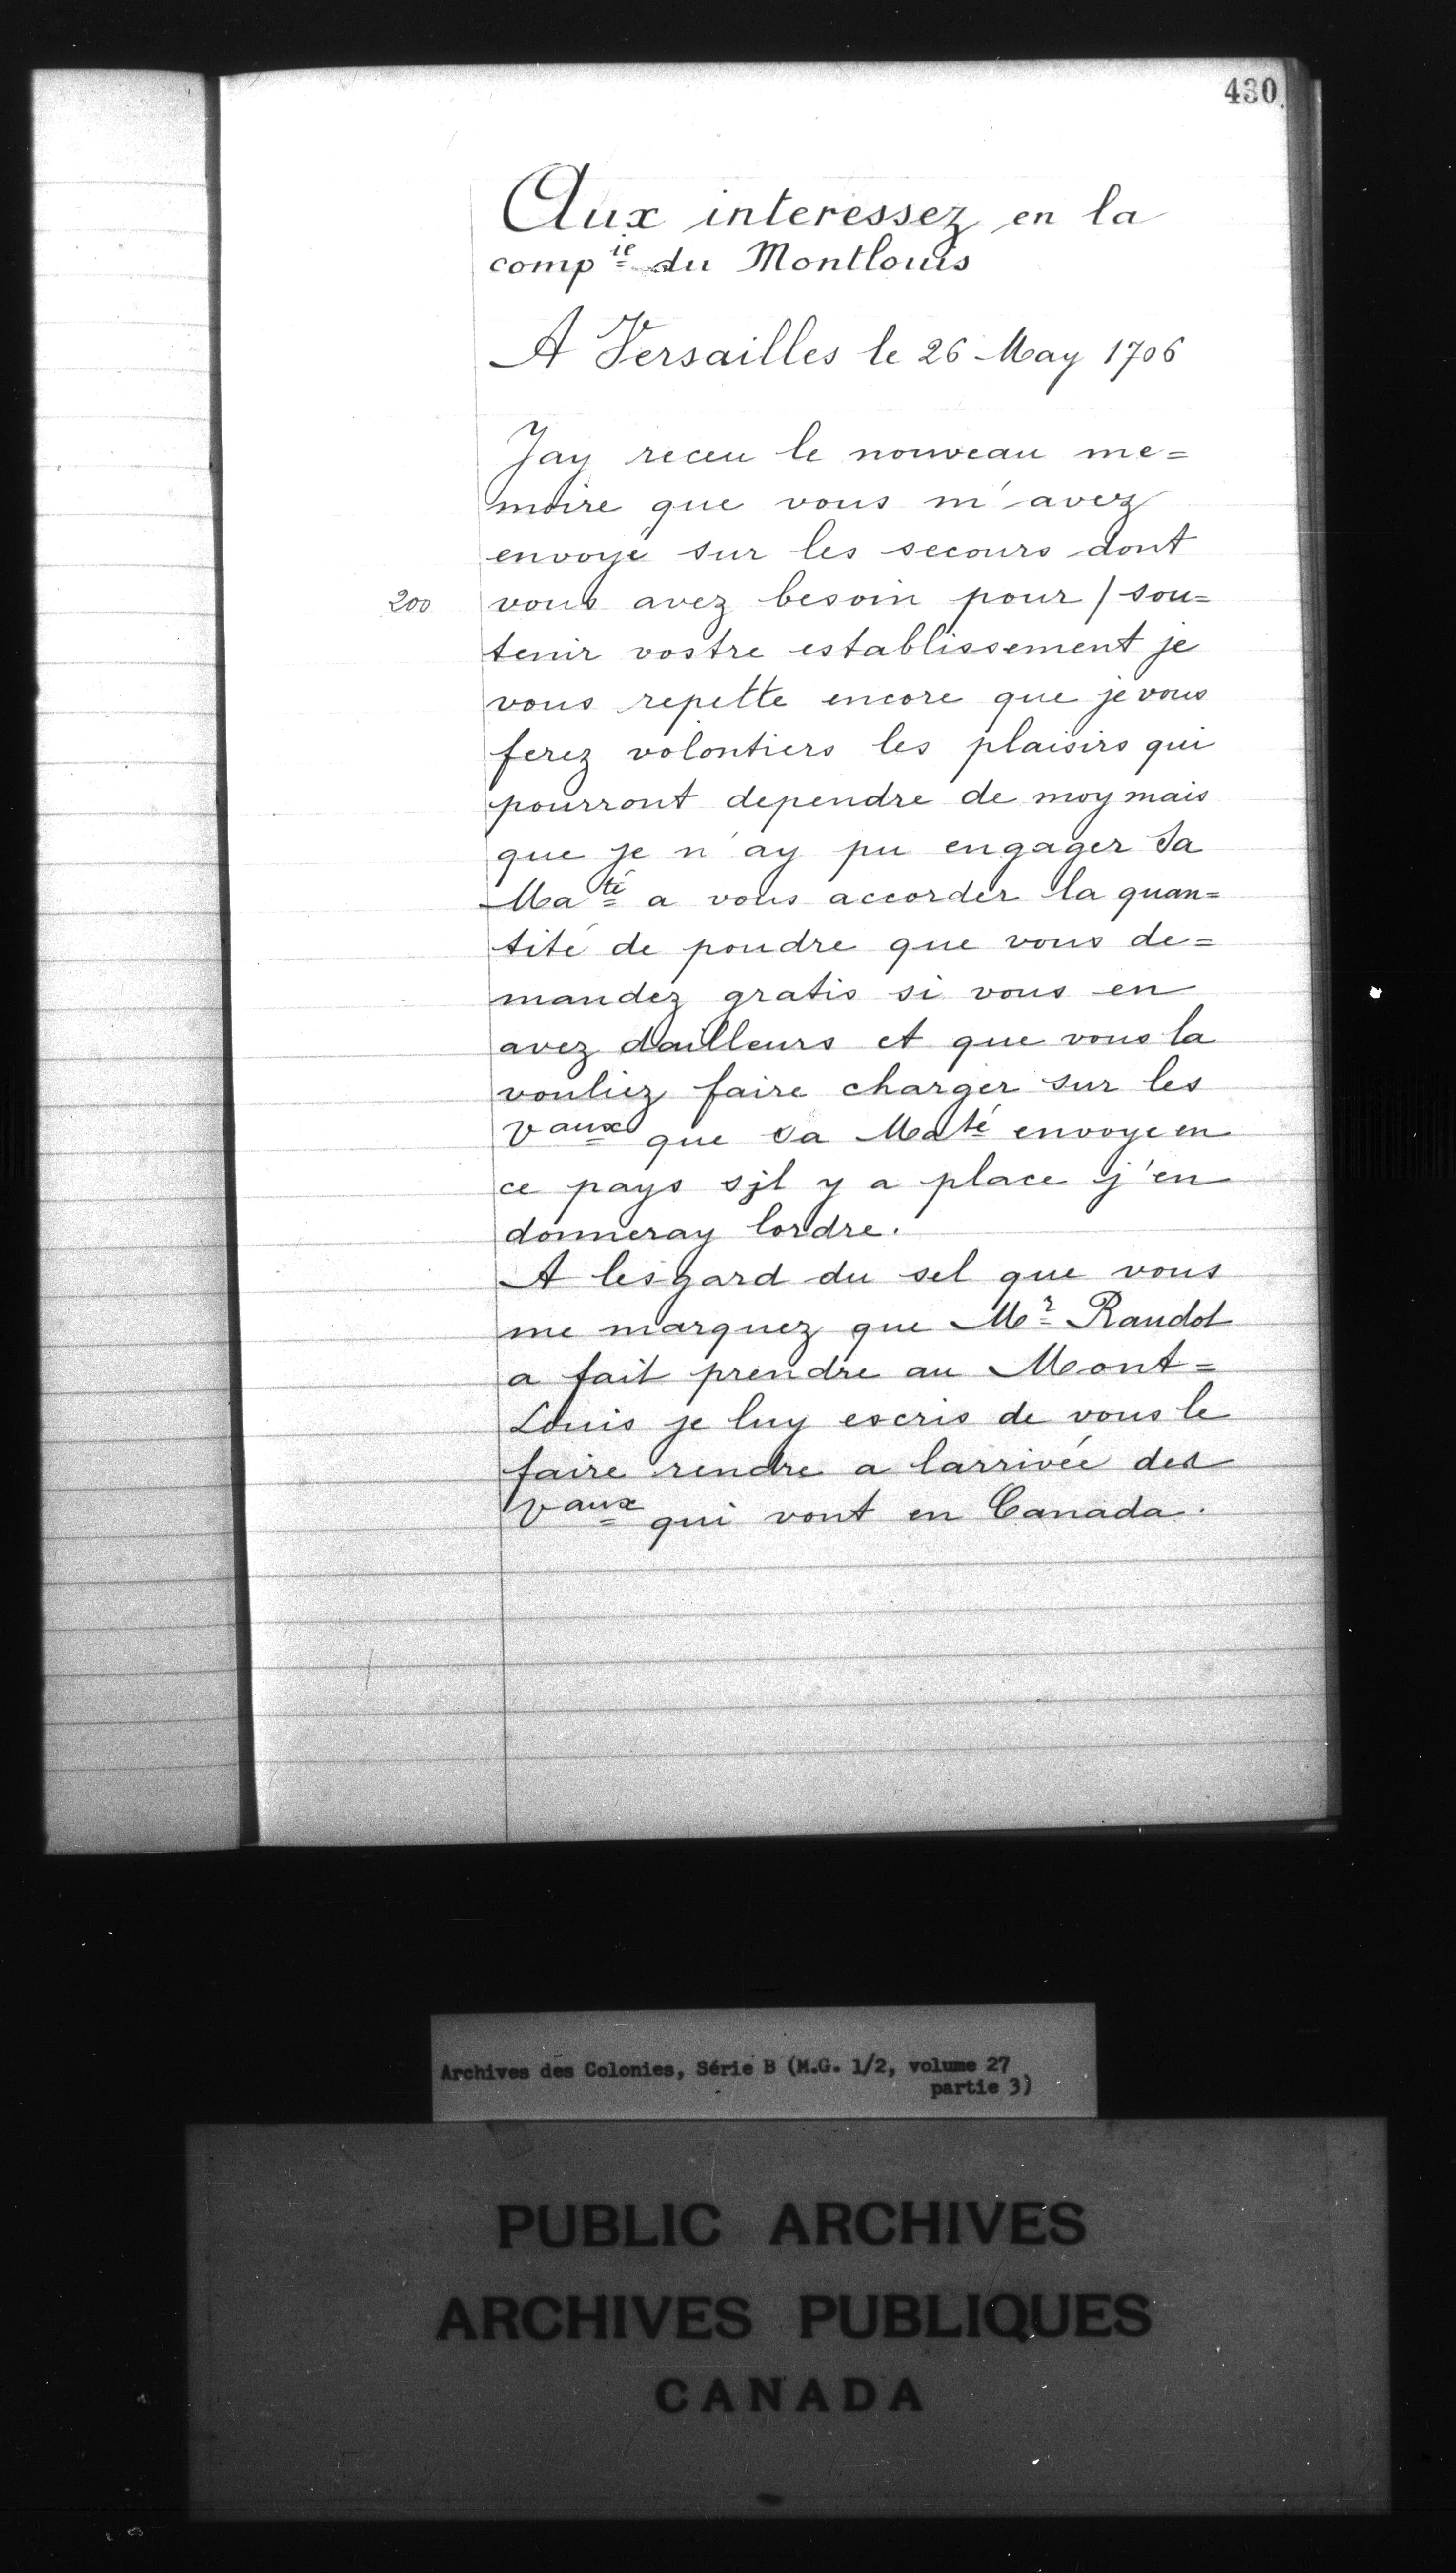 430
Aux interessez en la
comp.ie du Montlouis
A Versailles le 26 May 1706
Jay receu le nouveau me=
moire que vous m'avez
envoyé sur les secours dont
200 vous avez besoin pour / sou=
tenir vostre establissement je
vous repette encore que je vous
ferez volontiers les plaisirs qui
pourront dependre de moy mais
que je n'ay pu engager Sa
Ma.té a vous accorder la quan=
tité de poudre que vous de=
mandez gratis si vous en
avez dailleurs et que vous la
vouliez faire charger sur les
Vaux que Sa Maté envoye en
ce pays sjl y a place j'en
donneray lordre.
A lesgard du sel que vous
me marquez que Mr Raudot
a fait prendre au Mont=
Louis je luy escris de vous le
faire rendre a larrivée des
Vaux qui vont en Canada.
Archives des Colonies, Série B (M.G. 1/2, volume 27
partie 3)
PUBLIC ARCHIVES
ARCHIVES PUBLIQUES
CANADA